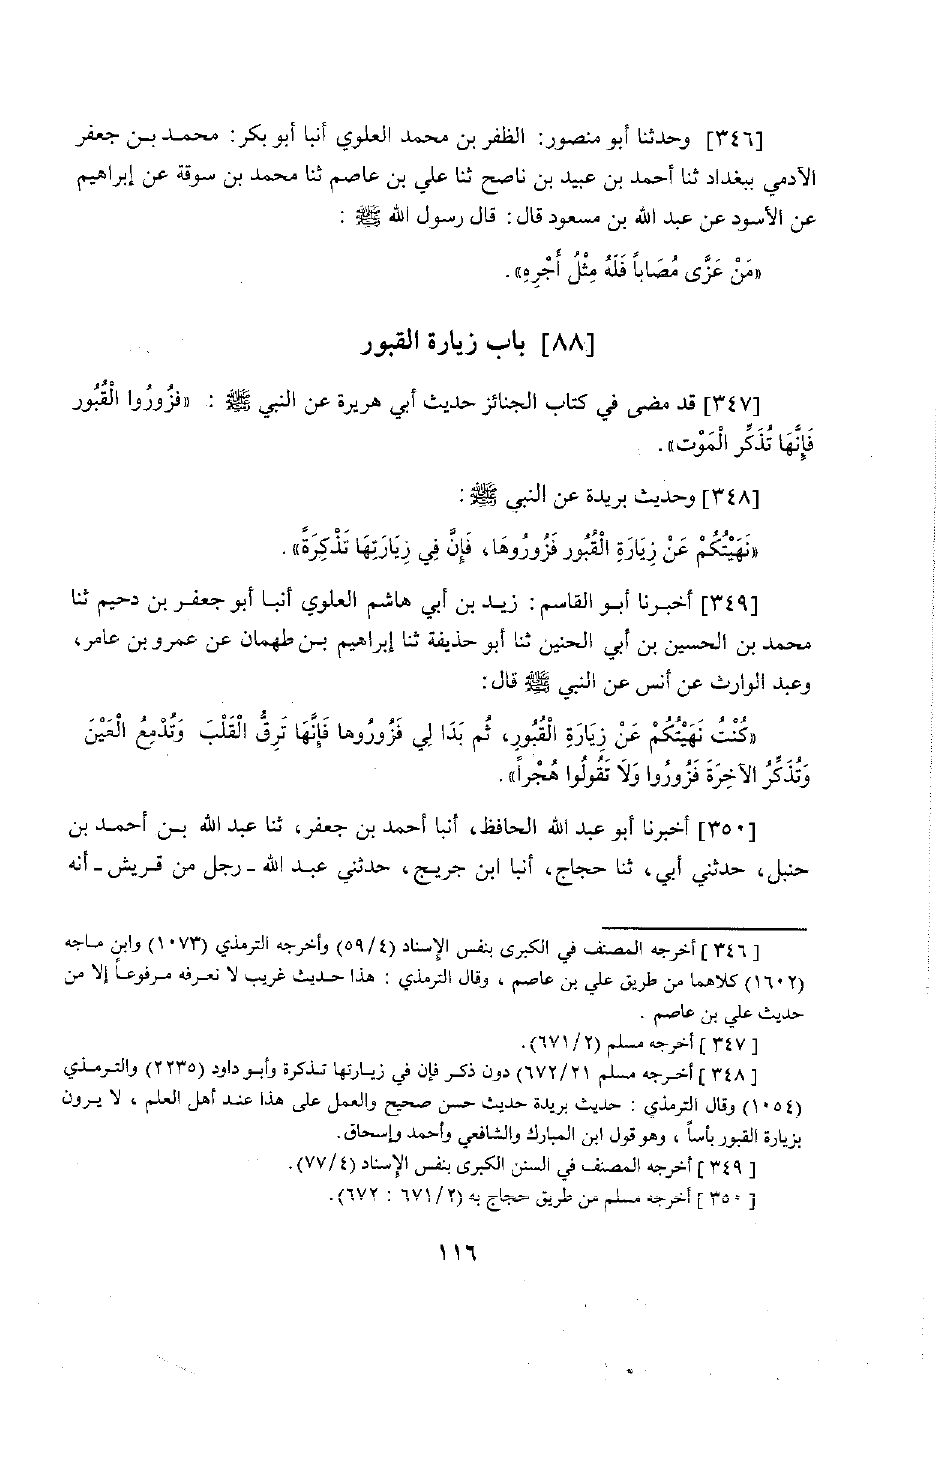 [٣٤٦] وحدثنا أبو منصور: الظفر بن محمد العلوي أنبا أبو بكر: محمد بن جعفر
الآدمي ببغداد ثنا أحمد بن عبيد بن ناصح ثنا علي بن عاصم ثنا محمد بن سوقة عن إبراهيم
عن الأسود عن عبد الله بن مسعود قال: قال رسول الله ﷺ :
«مَنْ عَزَّى مُصَاباً فَلَهُ مِثْلُ أَجْرِهِ».
[٨٨] باب زيارة القبور
[٣٤٧] قد مضى في كتاب الجنائز حديث أبي هريرة عن النبي ﷺ : «فَزُورُوا الْقُبُور
فَإِنَّهَا تُذَكِّر الْمَوْت».
[٣٤٨] وحديث بريدة عن النبي ﷺ :
«نَهَيْتُكُمْ عَنْ زِيَارَةِ الْقُبُور فَزُورُوهَا، فَإِنَّ فِي زِيَارَتِهَا تَذْكِرَةً».
[٣٤٩] أخبرنا أبو القاسم: زيد بن أبي هاشم العلوي أنبا أبو جعفر بن دحيم ثنا
محمد بن الحسين بن أبي الحنين ثنا أبو حذيفة ثنا إبراهيم بن طهمان عن عمرو بن عامر،
وعبد الوارث عن أنس عن النبي ﷺ قال:
«كُنْتُ نَهَيْتُكُمْ عَنْ زِيَارَةِ الْقُبُورِ، ثُم بَدَا لِي فَزُورُوها فَإِنَّهَا تَرِقُّ الْقَلْبَ وَتُدْمِعُ الْعَيْنَ
وَتُذَكِّرُ الآخِرَةَ فَزُورُوا وَلاَ تَقُولُوا هُجْراً».
[٣٥٠] أخبرنا أبو عبد الله الحافظ، أنبا أحمد بن جعفر، ثنا عبد الله بن أحمد بن
حنبل، حدثني أبي، ثنا حجاج، أنبا ابن جريج، حدثني عبد الله - رجل من قريش - أنه
[٣٤٦] أخرجه المصنف في الكبرى بنفس الإسناد (٥٩/٤) وأخرجه الترمذي (١٠٧٣) وابن ماجه
(١٦٠٢) كلاهما من طريق علي بن عاصم ، وقال الترمذي : هذا حديث غريب لا نعرفه مرفوعاً إلا من
حديث علي بن عاصم .
[٣٤٧] أخرجه مسلم (٦٧١/٢).
[٣٤٨] أخرجه مسلم ٦٧٢/٢١) دون ذكر فإن في زيارتها تذكرة وأبو داود (٢٢٣٥) والترمذي
(١٠٥٤) وقال الترمذي : حديث بريدة حديث حسن صحيح والعمل على هذا عند أهل العلم ، لا يرون
بزيارة القبور بأساً ، وهو قول ابن المبارك والشافعي وأحمد وإسحاق.
[٣٤٩] أخرجه المصنف في السنن الكبرى بنفس الإسناد (٧٧/٤).
[٣٥٠] أخرجه مسلم من طريق حجاج به (٦٧١/٢ : ٦٧٢).
١١٦